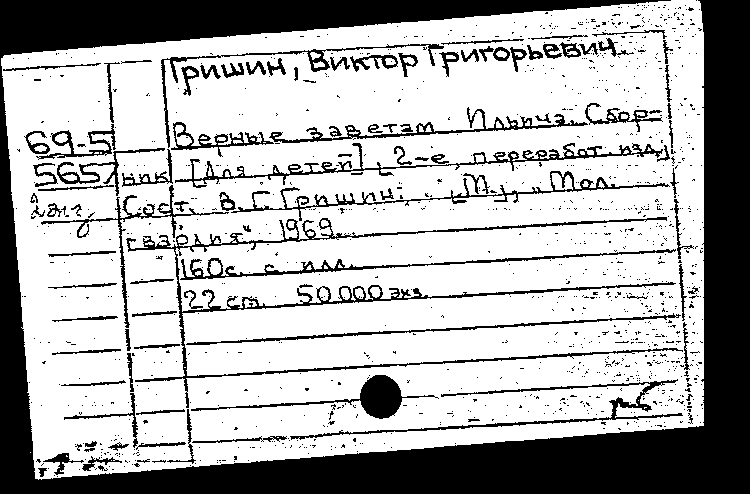 Гришин, Виктор Григорьевич.
69-5
5657
2 энз
Верные заветам Ильича. Сбор=
ник [Для детей] [2-е, переработ. изд.]
Сост. В. Г. Гришин. [М.], „Мол.
гвардия“, 1969.
160 с. с илл.
22 см. 50 000 экз.